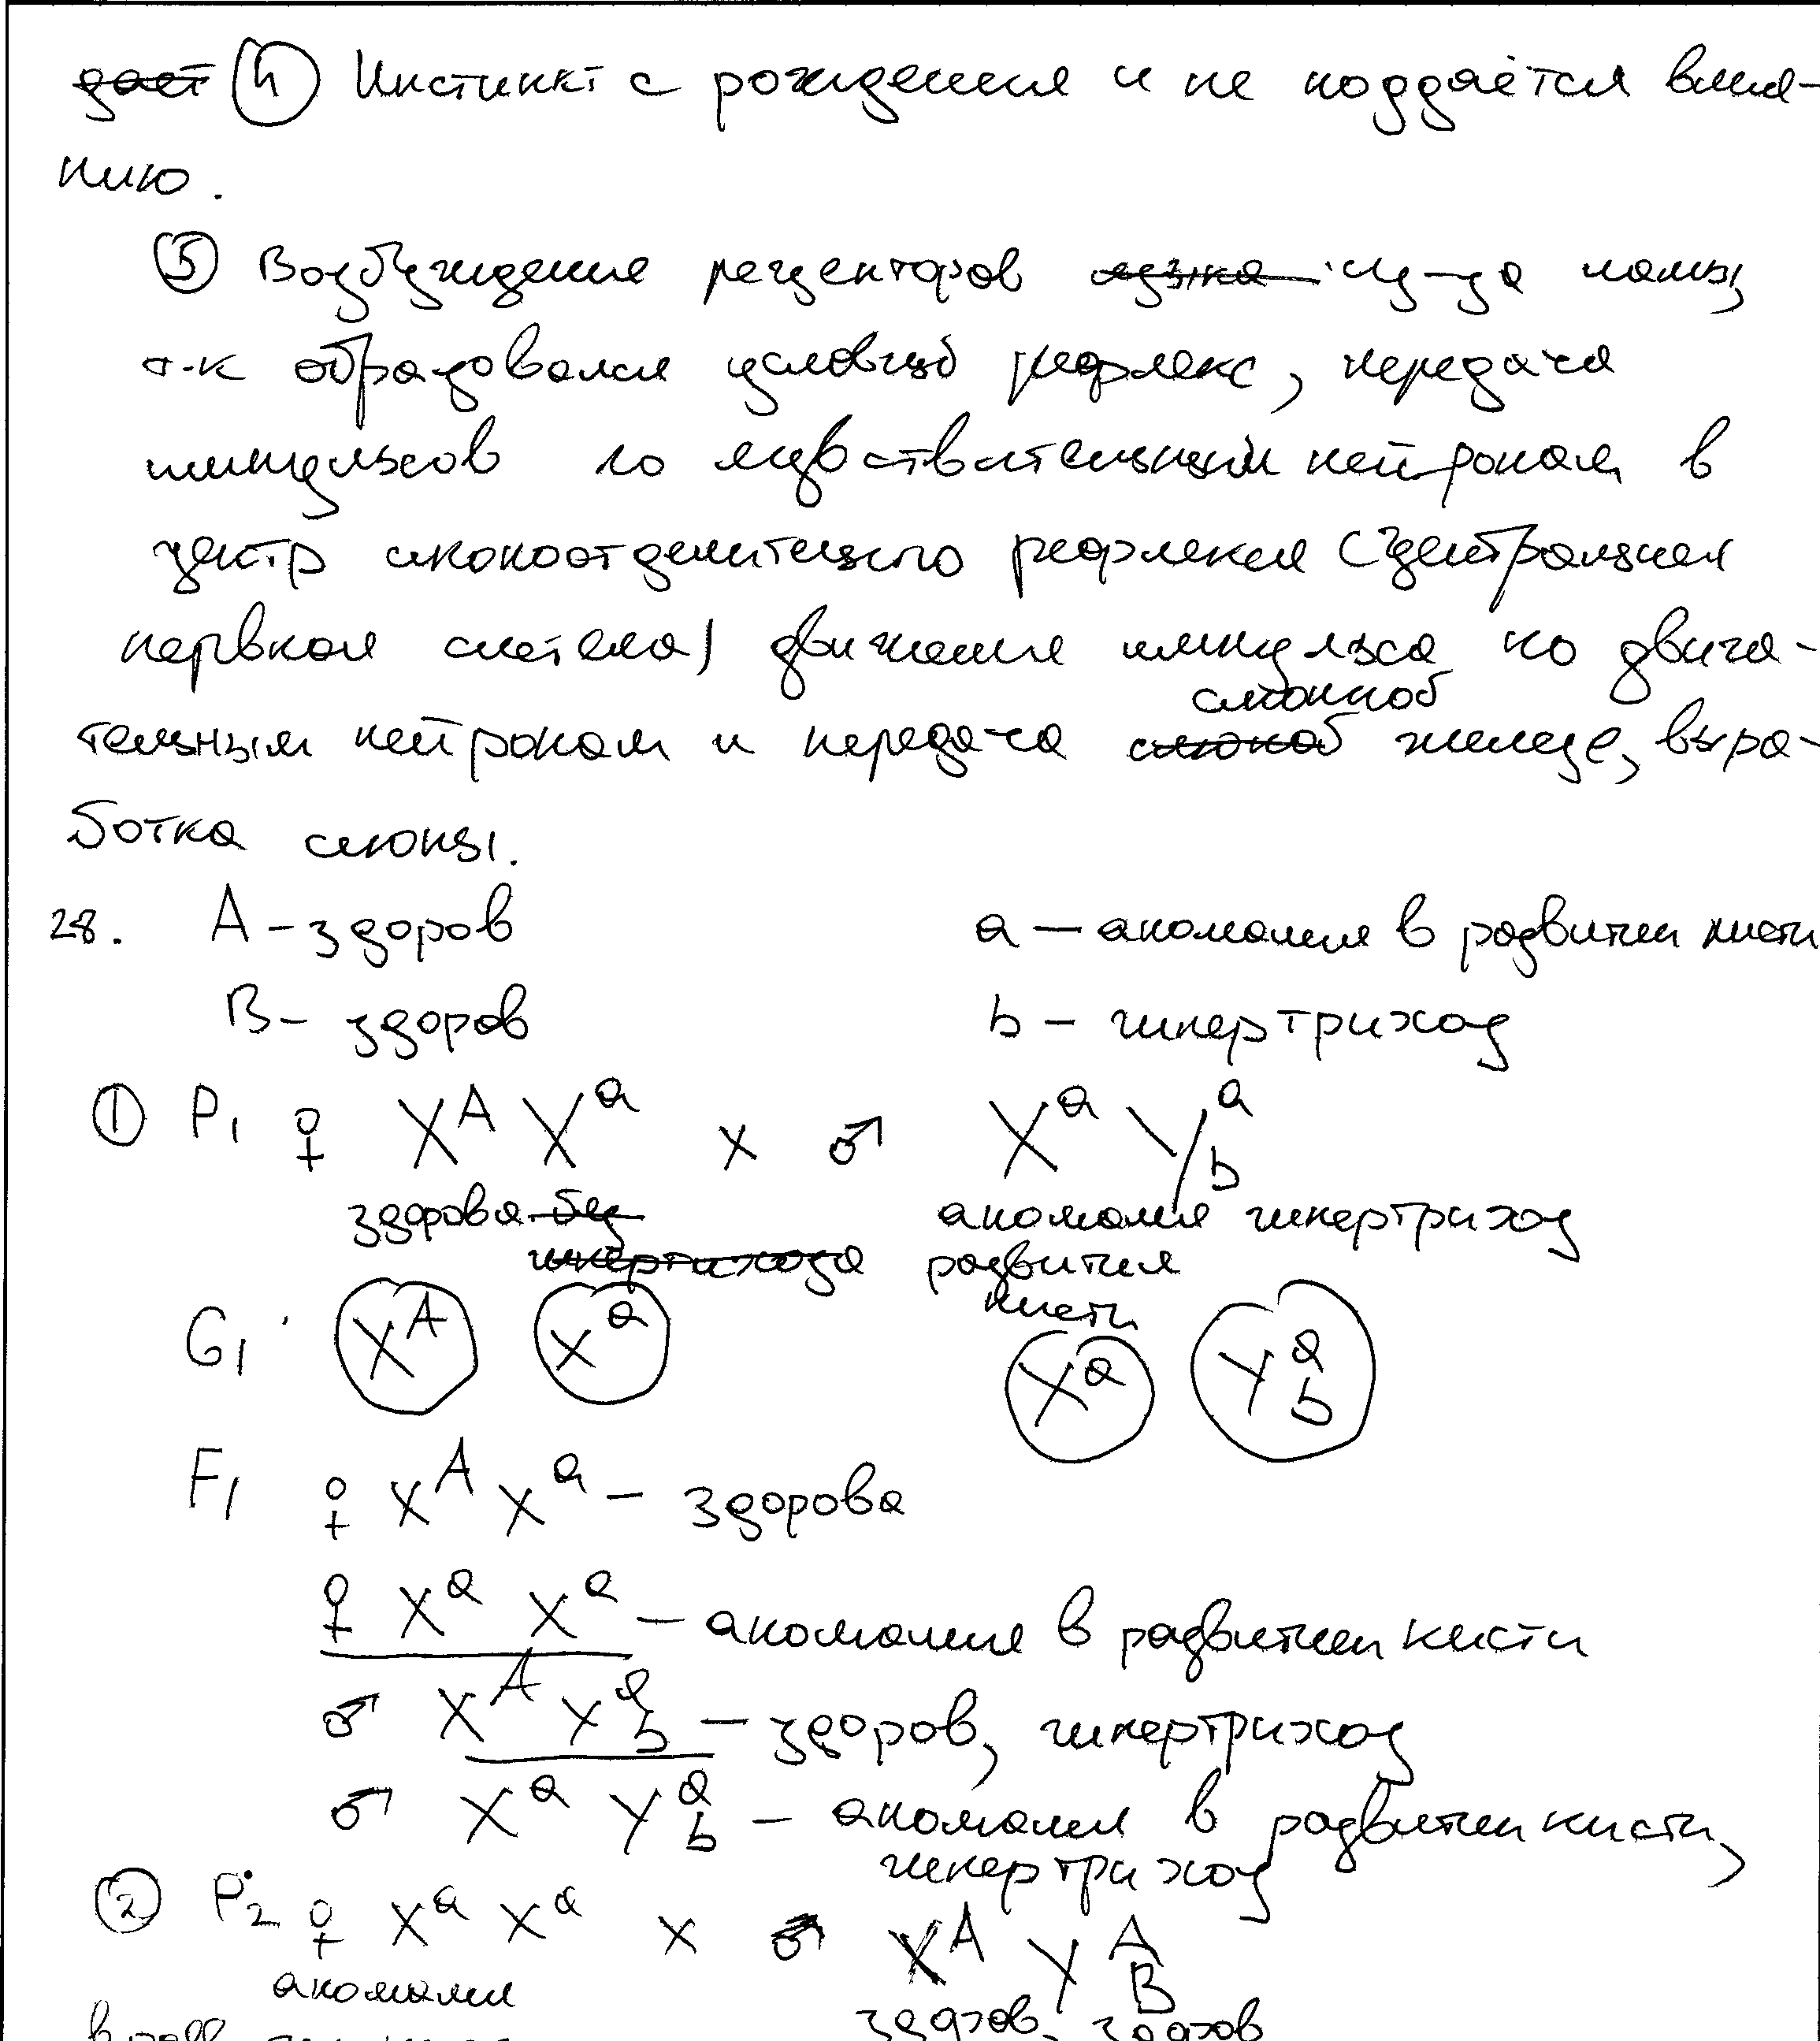 ~~дает~~ ④ Инстинкт с рождения и не поддаётся влия-
нию.
⑤ Возбуждение рецепторов из-за лампы,
т.к образовался условный рефлекс, передача
импульсов по чувствительным нейронам в
центр слюноотделительного рефлекса (центральная
нервная система) движения импульса по двига-
слюнной
тельным нейронам и передача ~~слюной~~ железе, выра-
ботка слюны.
28. A - здоров a - аномалия в развитии кисти
B - здоров b - гипертрихоз
① P1 ♀ X^A X^a x ♂ X^a Y^a_b
здорова ~~без~~ аномалия гипертрихоз
~~гипертрихоза~~ развития
кисти
G1 X^A X^a X^a Y^a_b
F1 ♀ X^A X^a - здорова
♀ X^a X^a - аномалия в развитии кисти
♂ X^A Y^a_b - здоров, гипертрихоз
♂ X^a Y^a_b - аномалия в развитии кисти,
гипертрихоз
② P2 ♀ X^a X^a x ♂ X^A Y^A_B
аномалия здоров, здоров